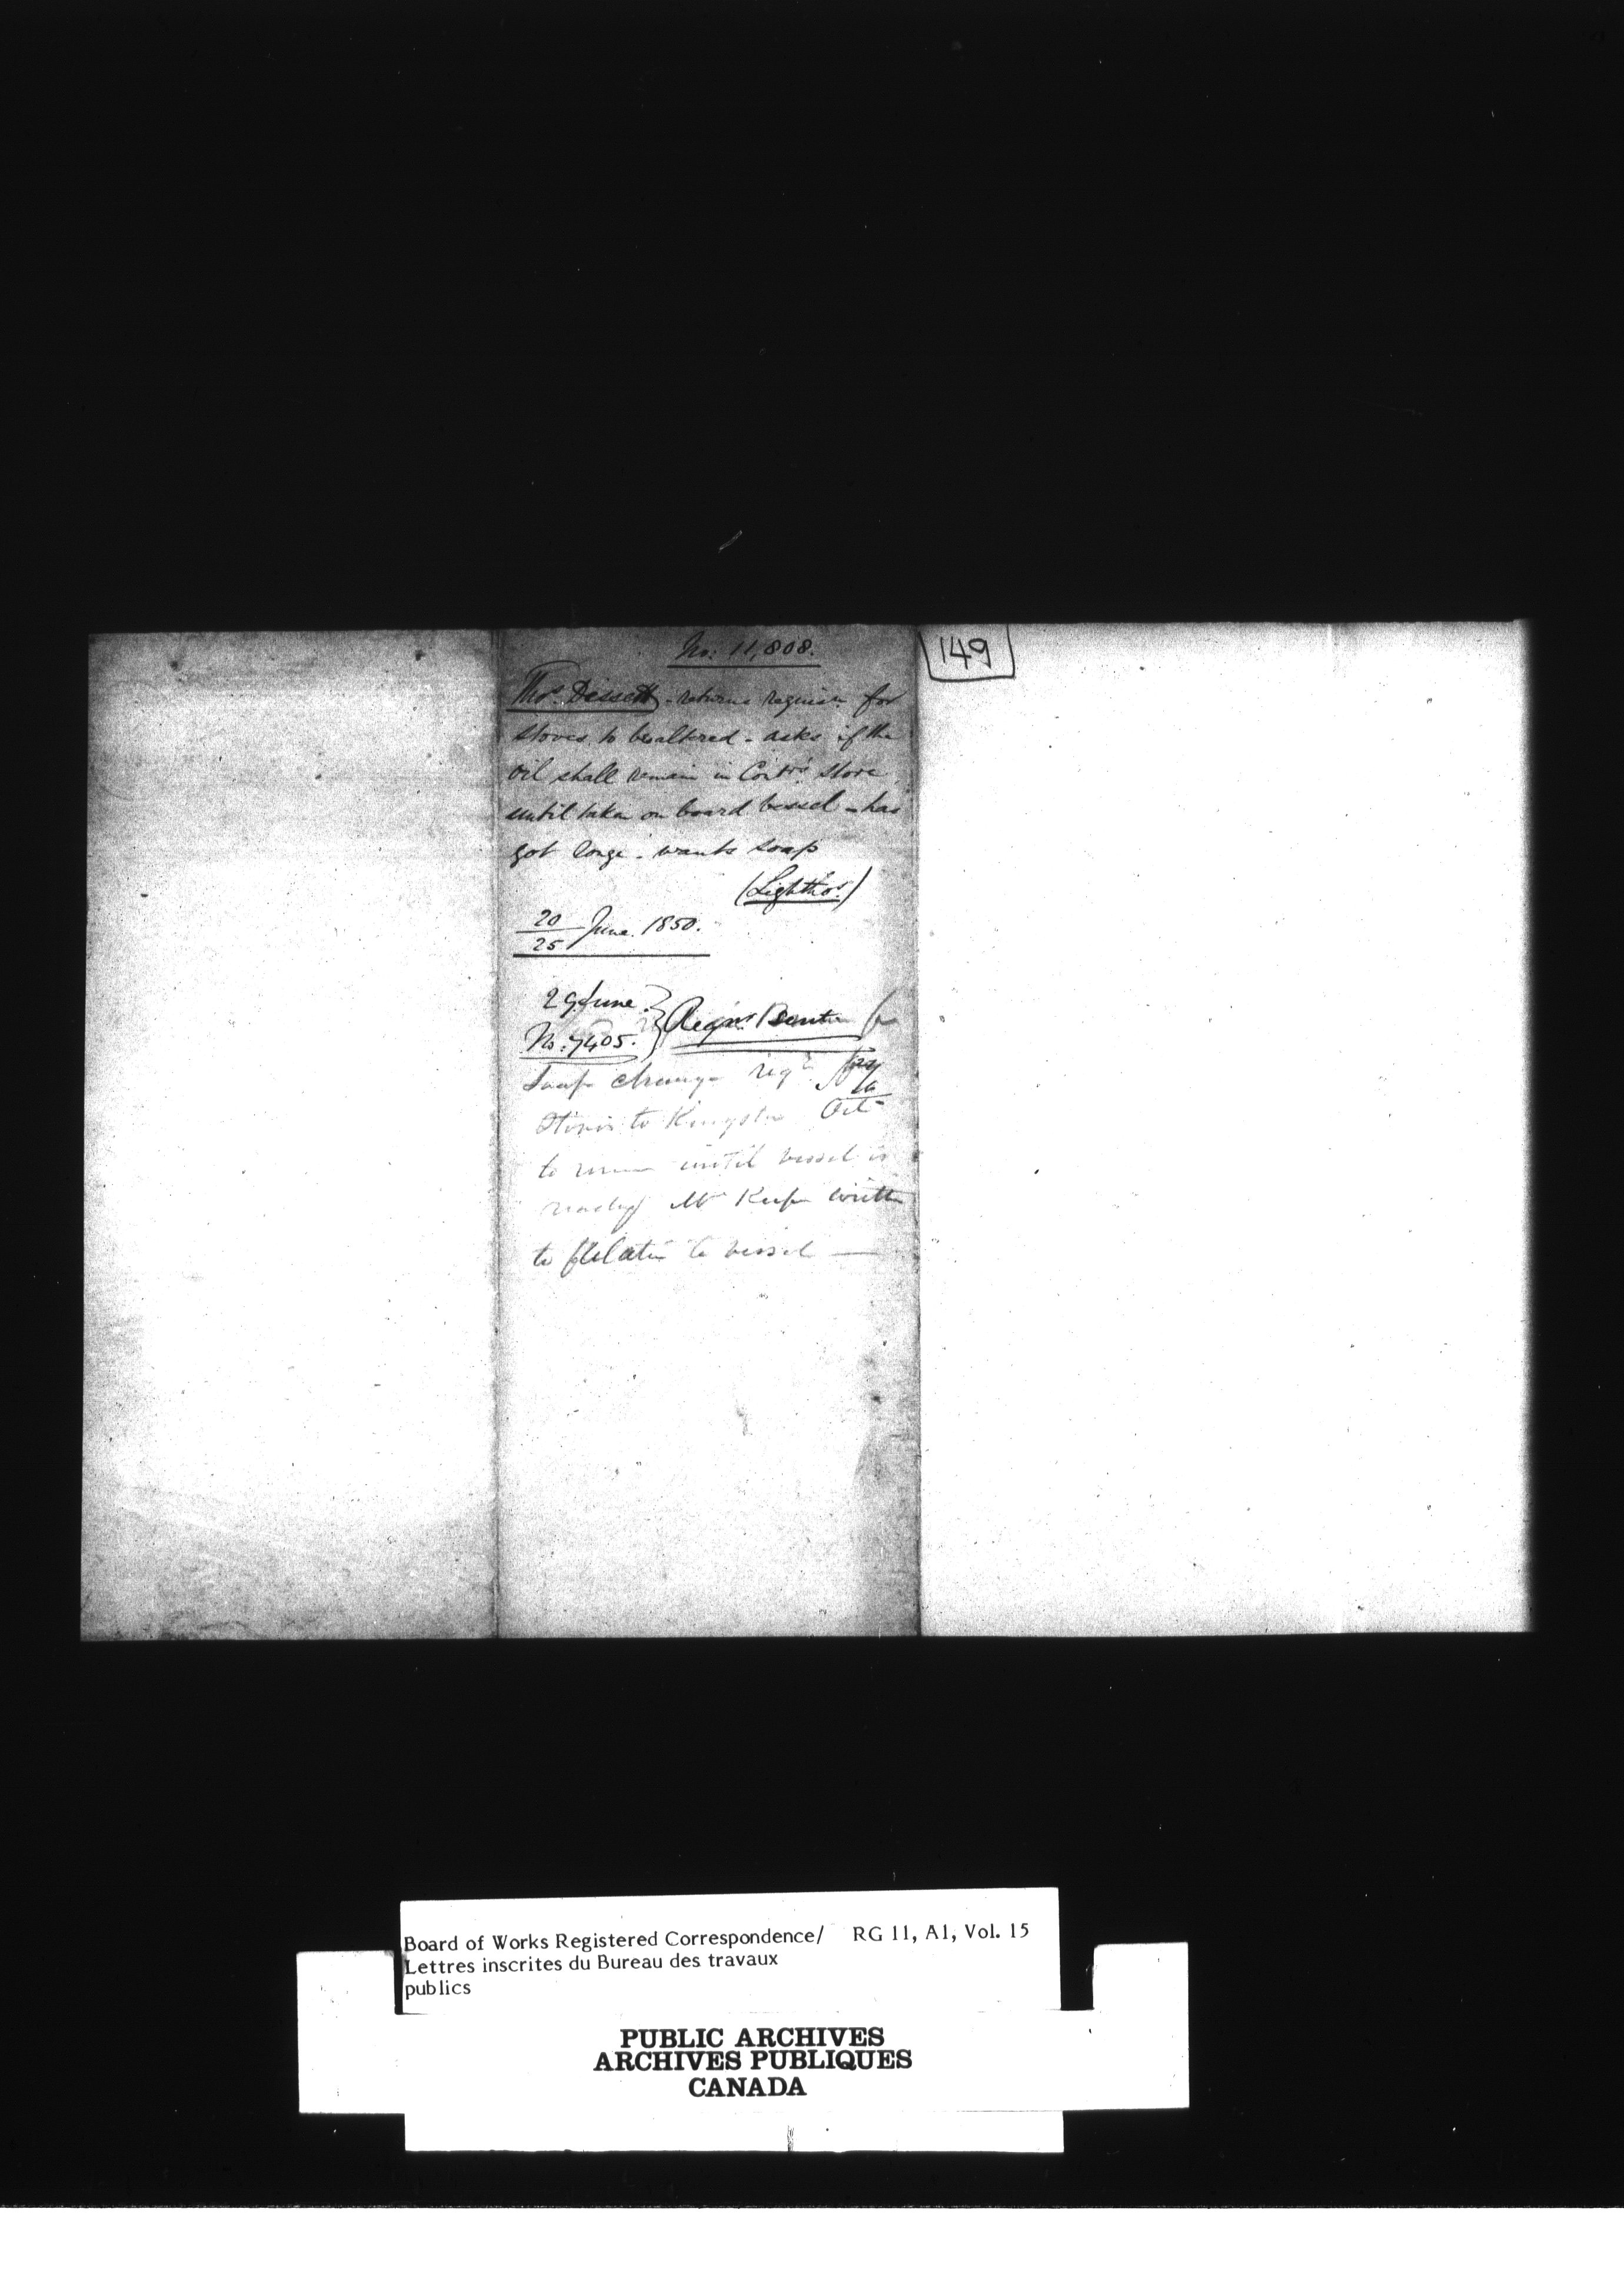 No: 11,808.
149
Thos. Dissett - returns requisn. for
stoves to be altered - asks if the
oil shall remain in Contrs. store
until taken on board vessel - has
got longe - wants soap
(Lightho.)
20/25 June. 1850.
29 June.
No. 7405.
Reqns. sent for
Soap change reqn. for
to Kingston Oil
to until vessel is
ready Mr written
to relative to vessel —
Board of Works Registered Correspondence/ RG 11, A1, Vol. 15
Lettres inscrites du Bureau des travaux
publics
PUBLIC ARCHIVES
ARCHIVES PUBLIQUES
CANADA